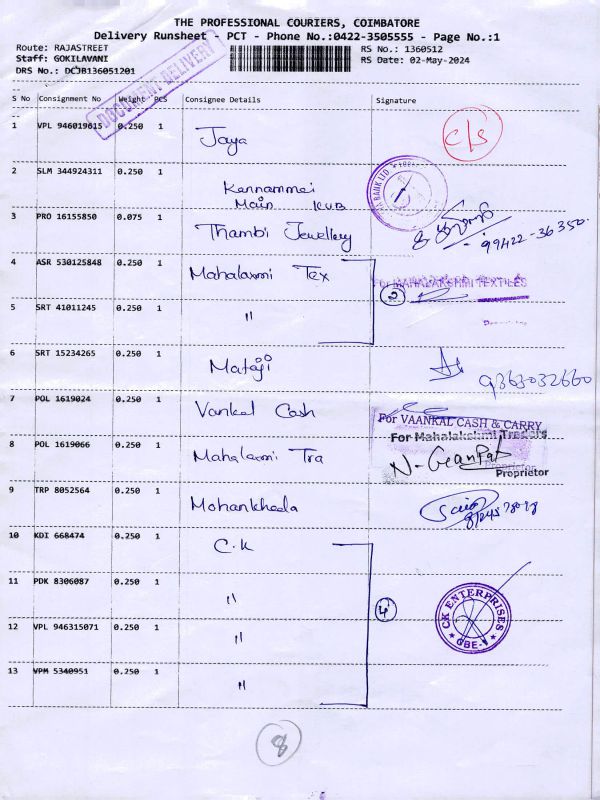 THE PROFESSIONAL COURIERS, COIMBATORE
Delivery Runsheet - PCT - Phone No.:0422-3505555 - Page No.:1
Route: RAJASTREET
Staff: GOKILAVANI
DRS No.: DCJB136051201
RS No.: 1360512
RS Date: 02-May-2024
DOCUMENT DELIVERY
S No Consignment No Weight PCS Consignee Details Signature
1 VPL 946019615 0.250 1 Jaya C/S
2 SLM 344924311 0.250 1 Kannammai
Main KVB
BANK LTD
3 PRO 16155850 0.075 1 Thambi Jewellery
99422-36350
4 ASR 530125848 0.250 1 Mahalaxmi Tex
For MAHALAKSHMI TEXTILES
2
5 SRT 41011245 0.250 1 "
6 SRT 15234265 0.250 1 Mataji
9363032660
7 POL 1619024 0.250 1 Vankal Cash
For VAANKAL CASH & CARRY
For Mahalakshmi Traders
8 POL 1619066 0.250 1 Mahalaxmi Tra
N. GeanPat
Proprietor
Proprietor
9 TRP 8052564 0.250 1 Mohankheda
10 KDI 668474 0.250 1 C.K
11 PDK 8306087 0.250 1 "
4
CK ENTERPRISES
CBE-1
12 VPL 946315071 0.250 1 "
13 VPM 5340951 0.250 1 "
8